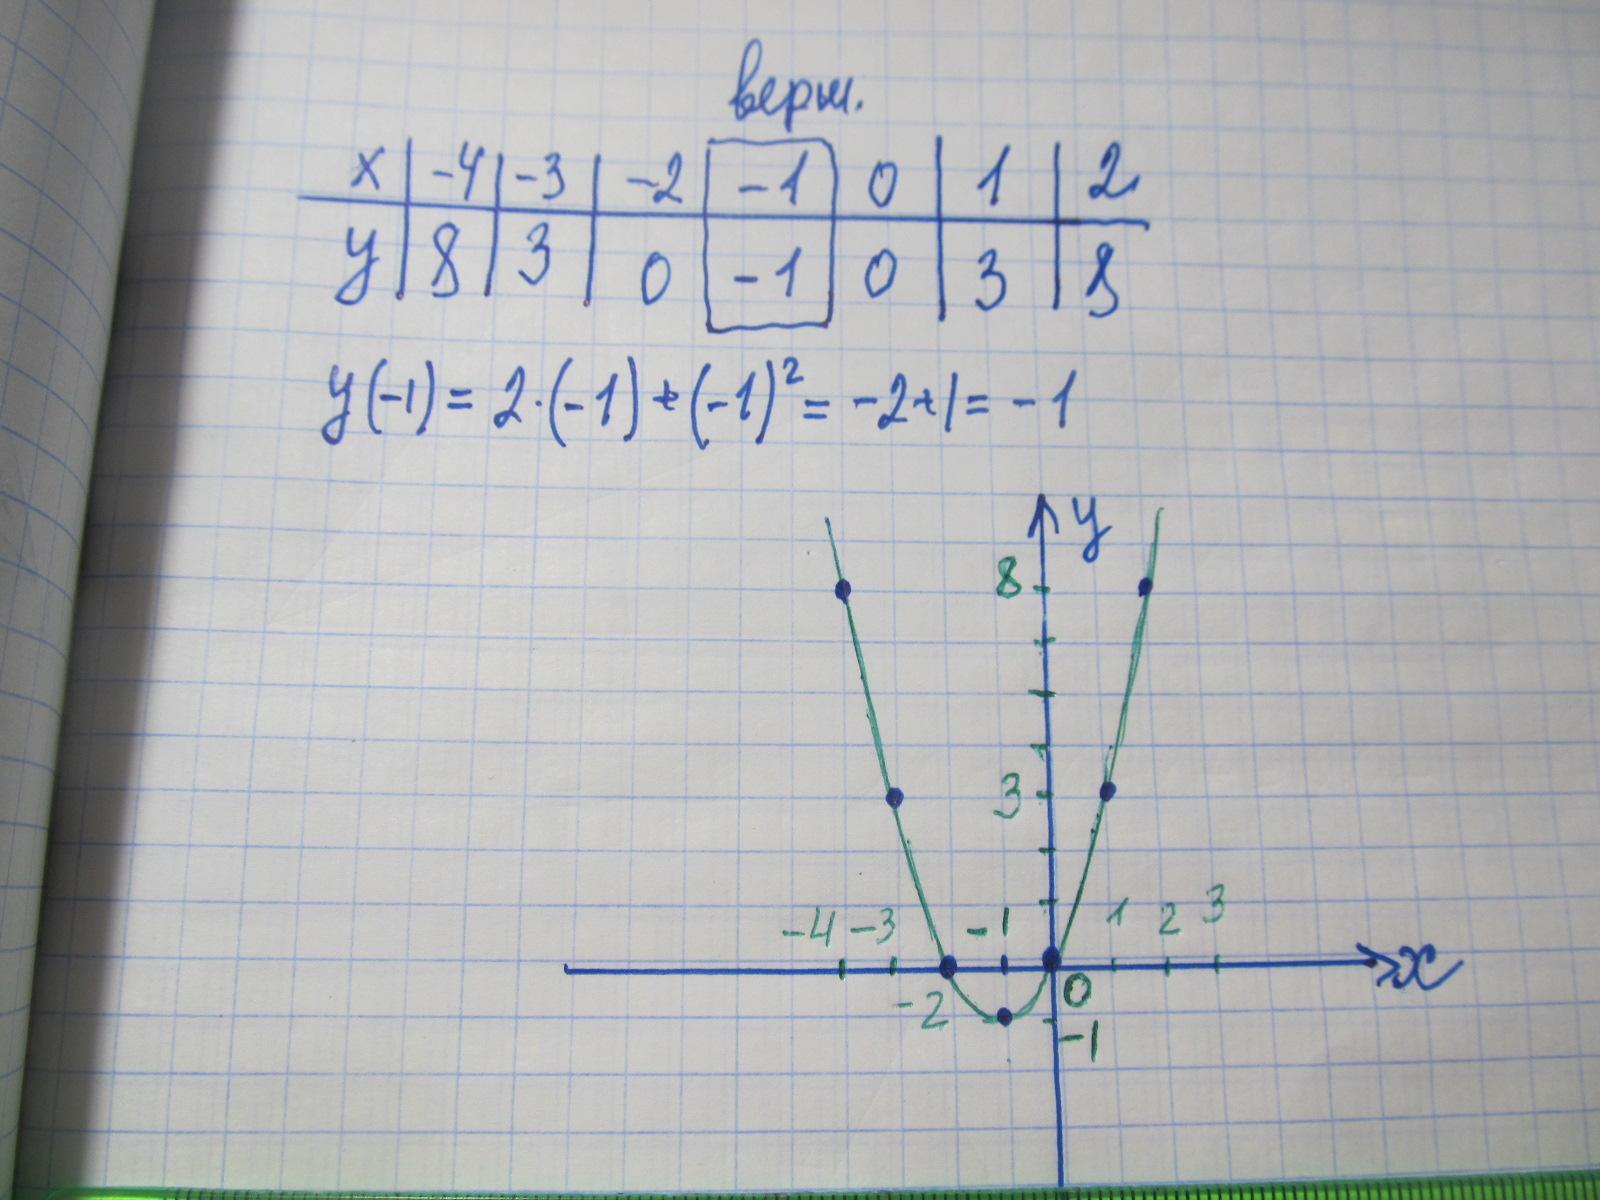 верш.
x -4 -3 -2 -1 0 1 2
y 8 3 0 -1 0 3 8
y(-1) = 2·(-1) + (-1)² = -2+1 = -1
y
8
3
-4 -3 -1 1 2 3
x
-2 0
-1